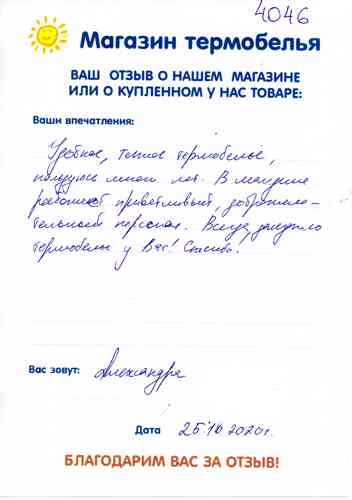 4046
Магазин термобелья
ВАШ ОТЗЫВ О НАШЕМ МАГАЗИНЕ
ИЛИ О КУПЛЕННОМ У НАС ТОВАРЕ:
Ваши впечатления:
Удобное, теплое термобелье,
пользуюсь много лет. В магазине
работает приветливый, доброжела-
тельный персонал. Всегда покупаю
термобелье у Вас! Спасибо.
Вас зовут: Александра
Дата 25.10.2020г.
БЛАГОДАРИМ ВАС ЗА ОТЗЫВ!